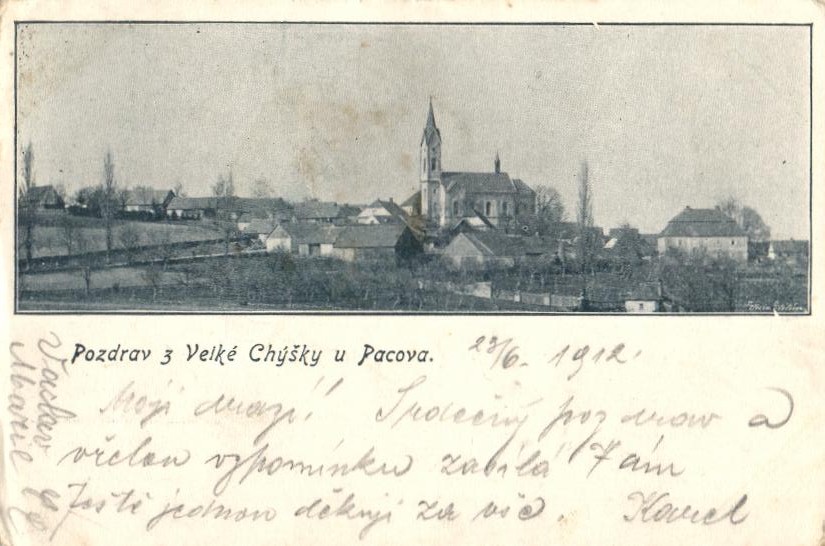 Pozdrav z Velké Chýšky u Pacova.
23/6. 1912.
Moji drazí! Srdečný pozdrav a
vřelou vzpomínku zasílá Vám
Ještě jednou děkuji za vše. Karel
Václav
Marie